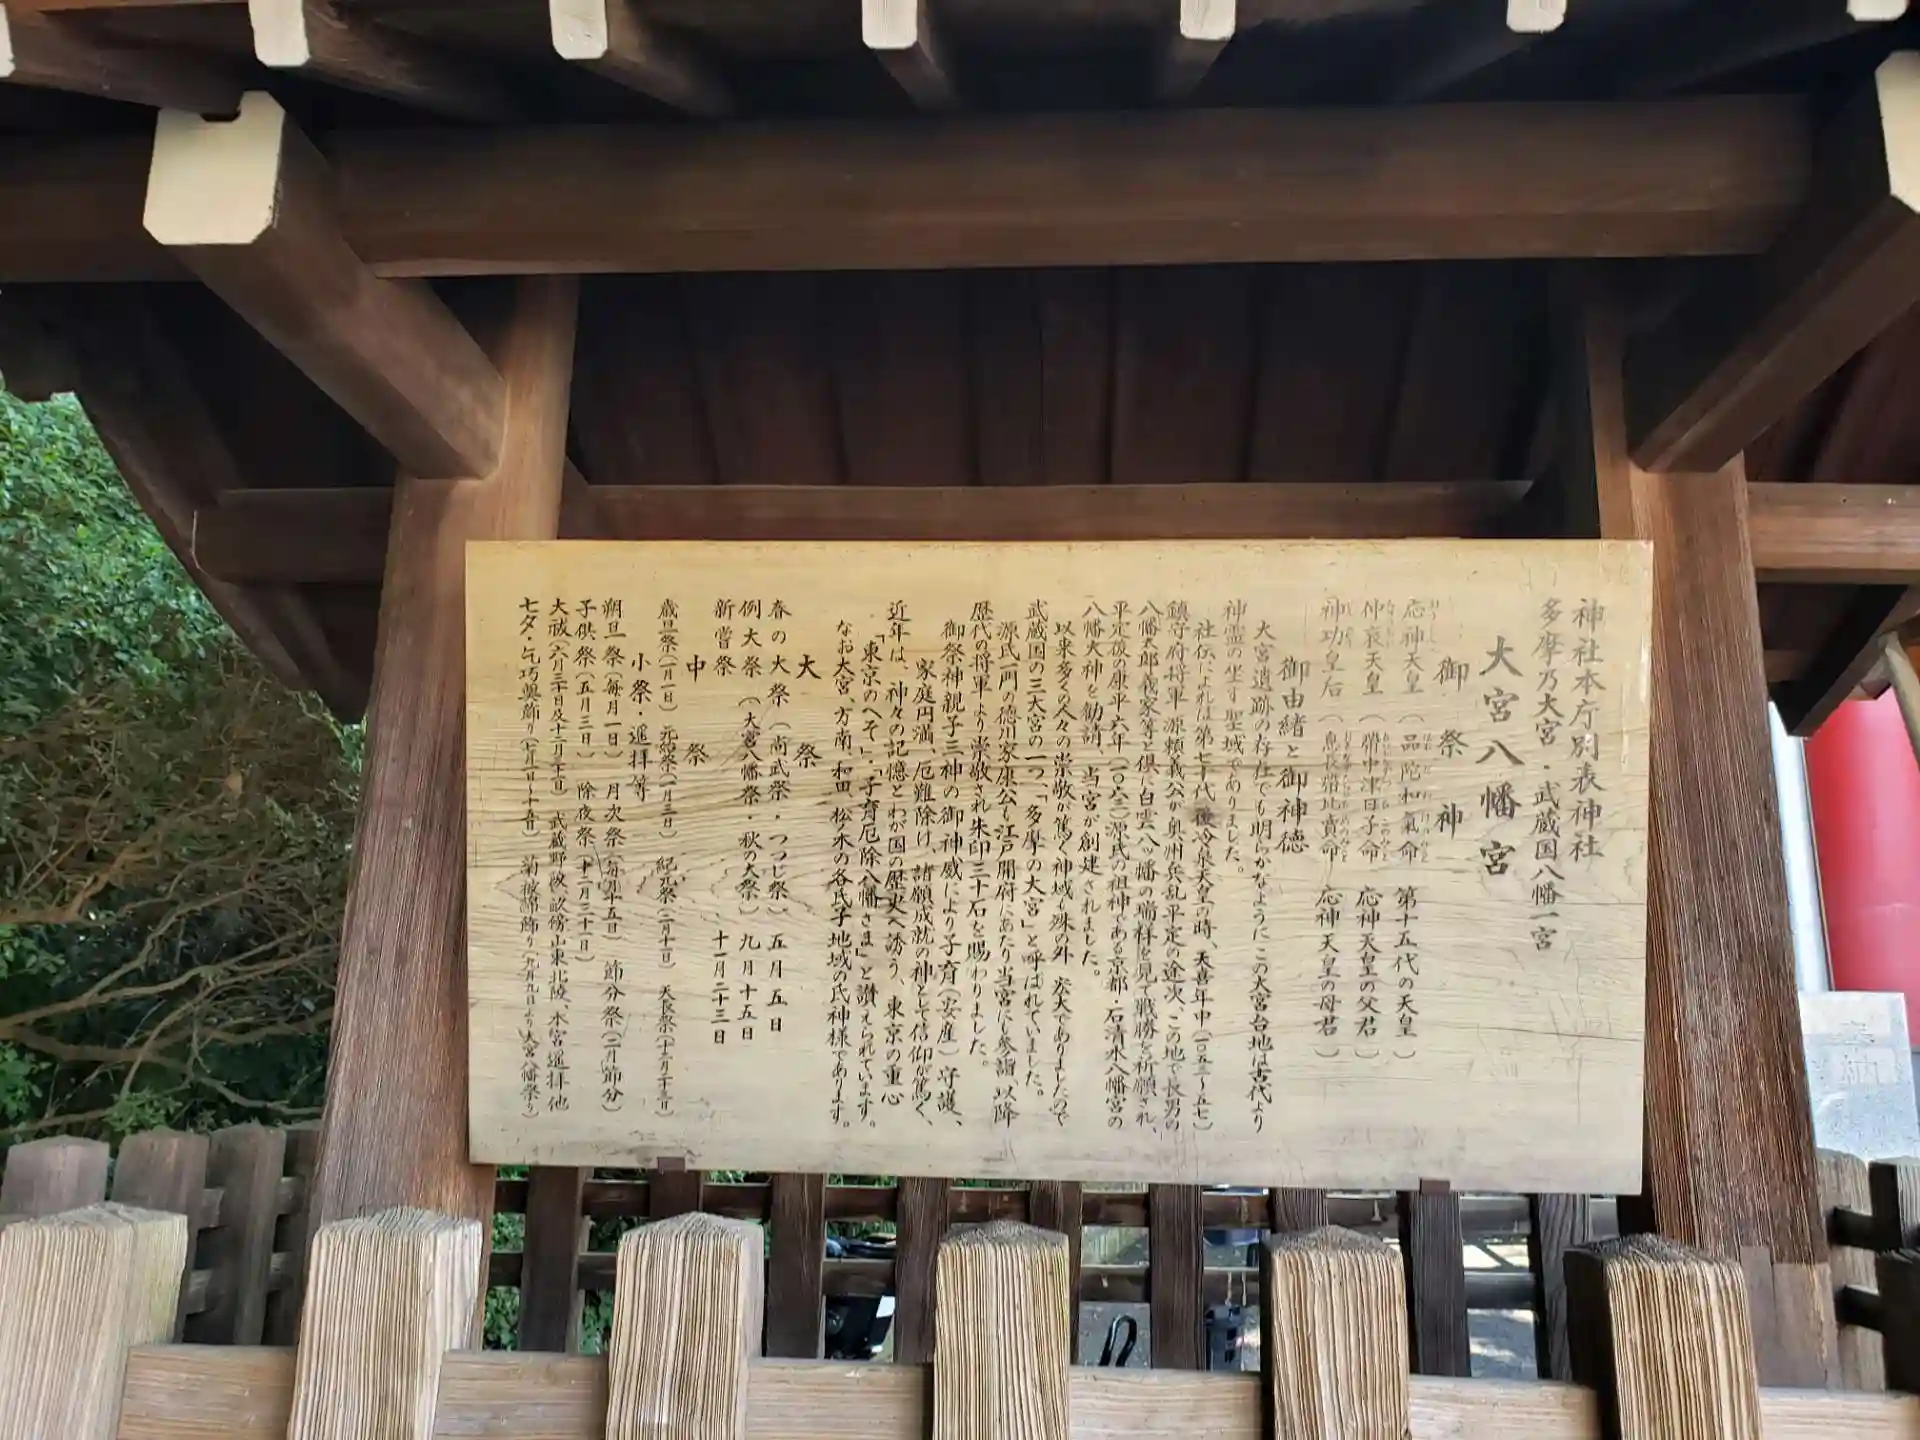 神社本庁別表神社
多摩乃大宮・武蔵国八幡一宮
大宮八幡宮
御祭神
応神天皇(品陀和氣命 第十五代の天皇)
仲哀天皇(帶中津日子命 応神天皇の父君)
神功皇后(息長帶比賣命 応神天皇の母君)
御由緒と御神徳
大宮遺跡の存在でも明らかなようにこの大宮台地は古代より
神霊の坐す聖域でありました。
社伝によれば第七十代後冷泉天皇の時、天喜年中(一〇五三〜五七)
鎮守府将軍源頼義公が奥州兵乱平定の途次、この地で長男の
八幡太郎義家等と倶に白雲八ッ幡の瑞祥を見て戦勝を祈願され、
平定後の康平六年(一〇六三)源氏の祖神である京都・石清水八幡宮の
八幡大神を勧請、当宮が創建されました。
以来多くの人々の崇敬が篤く神域も殊の外 宏大でありましたので
武蔵国の三大宮の一つ、「多摩の大宮」と呼ばれていました。
源氏一門の徳川家康公も江戸開府にあたり当宮にも参詣、以降
歴代の将軍より崇敬され朱印三十石を賜わりました。
御祭神親子三神の御神威により子育(安産)守護、
家庭円満、厄難除け、諸願成就の神として信仰が篤く、
近年は、神々の記憶とわが国の歴史へ誘う、東京の重心
「東京のへそ」・「子育厄除八幡さま」と讃えられています。
なお大宮・方南・和田・松ノ木の各氏子地域の氏神様であります。
大祭
春の大祭(尚武祭・つつじ祭)五月五日
例大祭(大宮八幡祭・秋の大祭)九月十五日
新嘗祭 十一月二十三日
中祭
歳旦祭(一月一日) 元始祭(一月三日) 紀元祭(二月十一日) 天長祭(十二月二十三日)
小祭・遥拝等
朔旦祭(毎月一日) 月次祭(毎月十五日) 節分祭(二月節分)
子供祭(五月三日) 除夜祭(十二月三十一日)
大祓(六月三十日及十二月三十一日) 武蔵野陵、畝傍山東北陵、本宮遥拝他
七夕・乞巧奠飾り(七月一日〜十五日) 菊被綿飾り(九月九日より大宮八幡祭り)
奉納